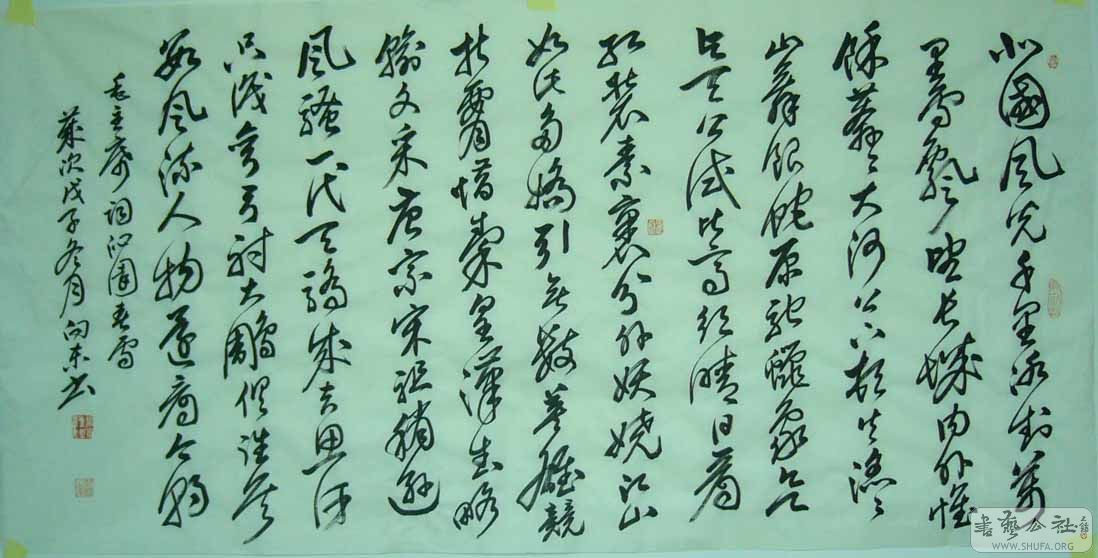 北國風光千里冰封萬
里雪飄望長城內外惟
餘莽〻大河上下頓失滔〻
山舞銀蛇原馳蠟象欲
與天公試比高須晴日看
紅裝素裹分外妖嬈江山
如此多嬌引無數英雄競
折腰惜秦皇漢武略
輸文采唐宗宋祖稍遜
風騷一代天驕成吉思汗
只識彎弓射大雕俱往矣
數風流人物還看今朝
毛主席詞沁園春雪
歲次戊子冬月向東書
書藝公社
WWW.SHUFA.ORG